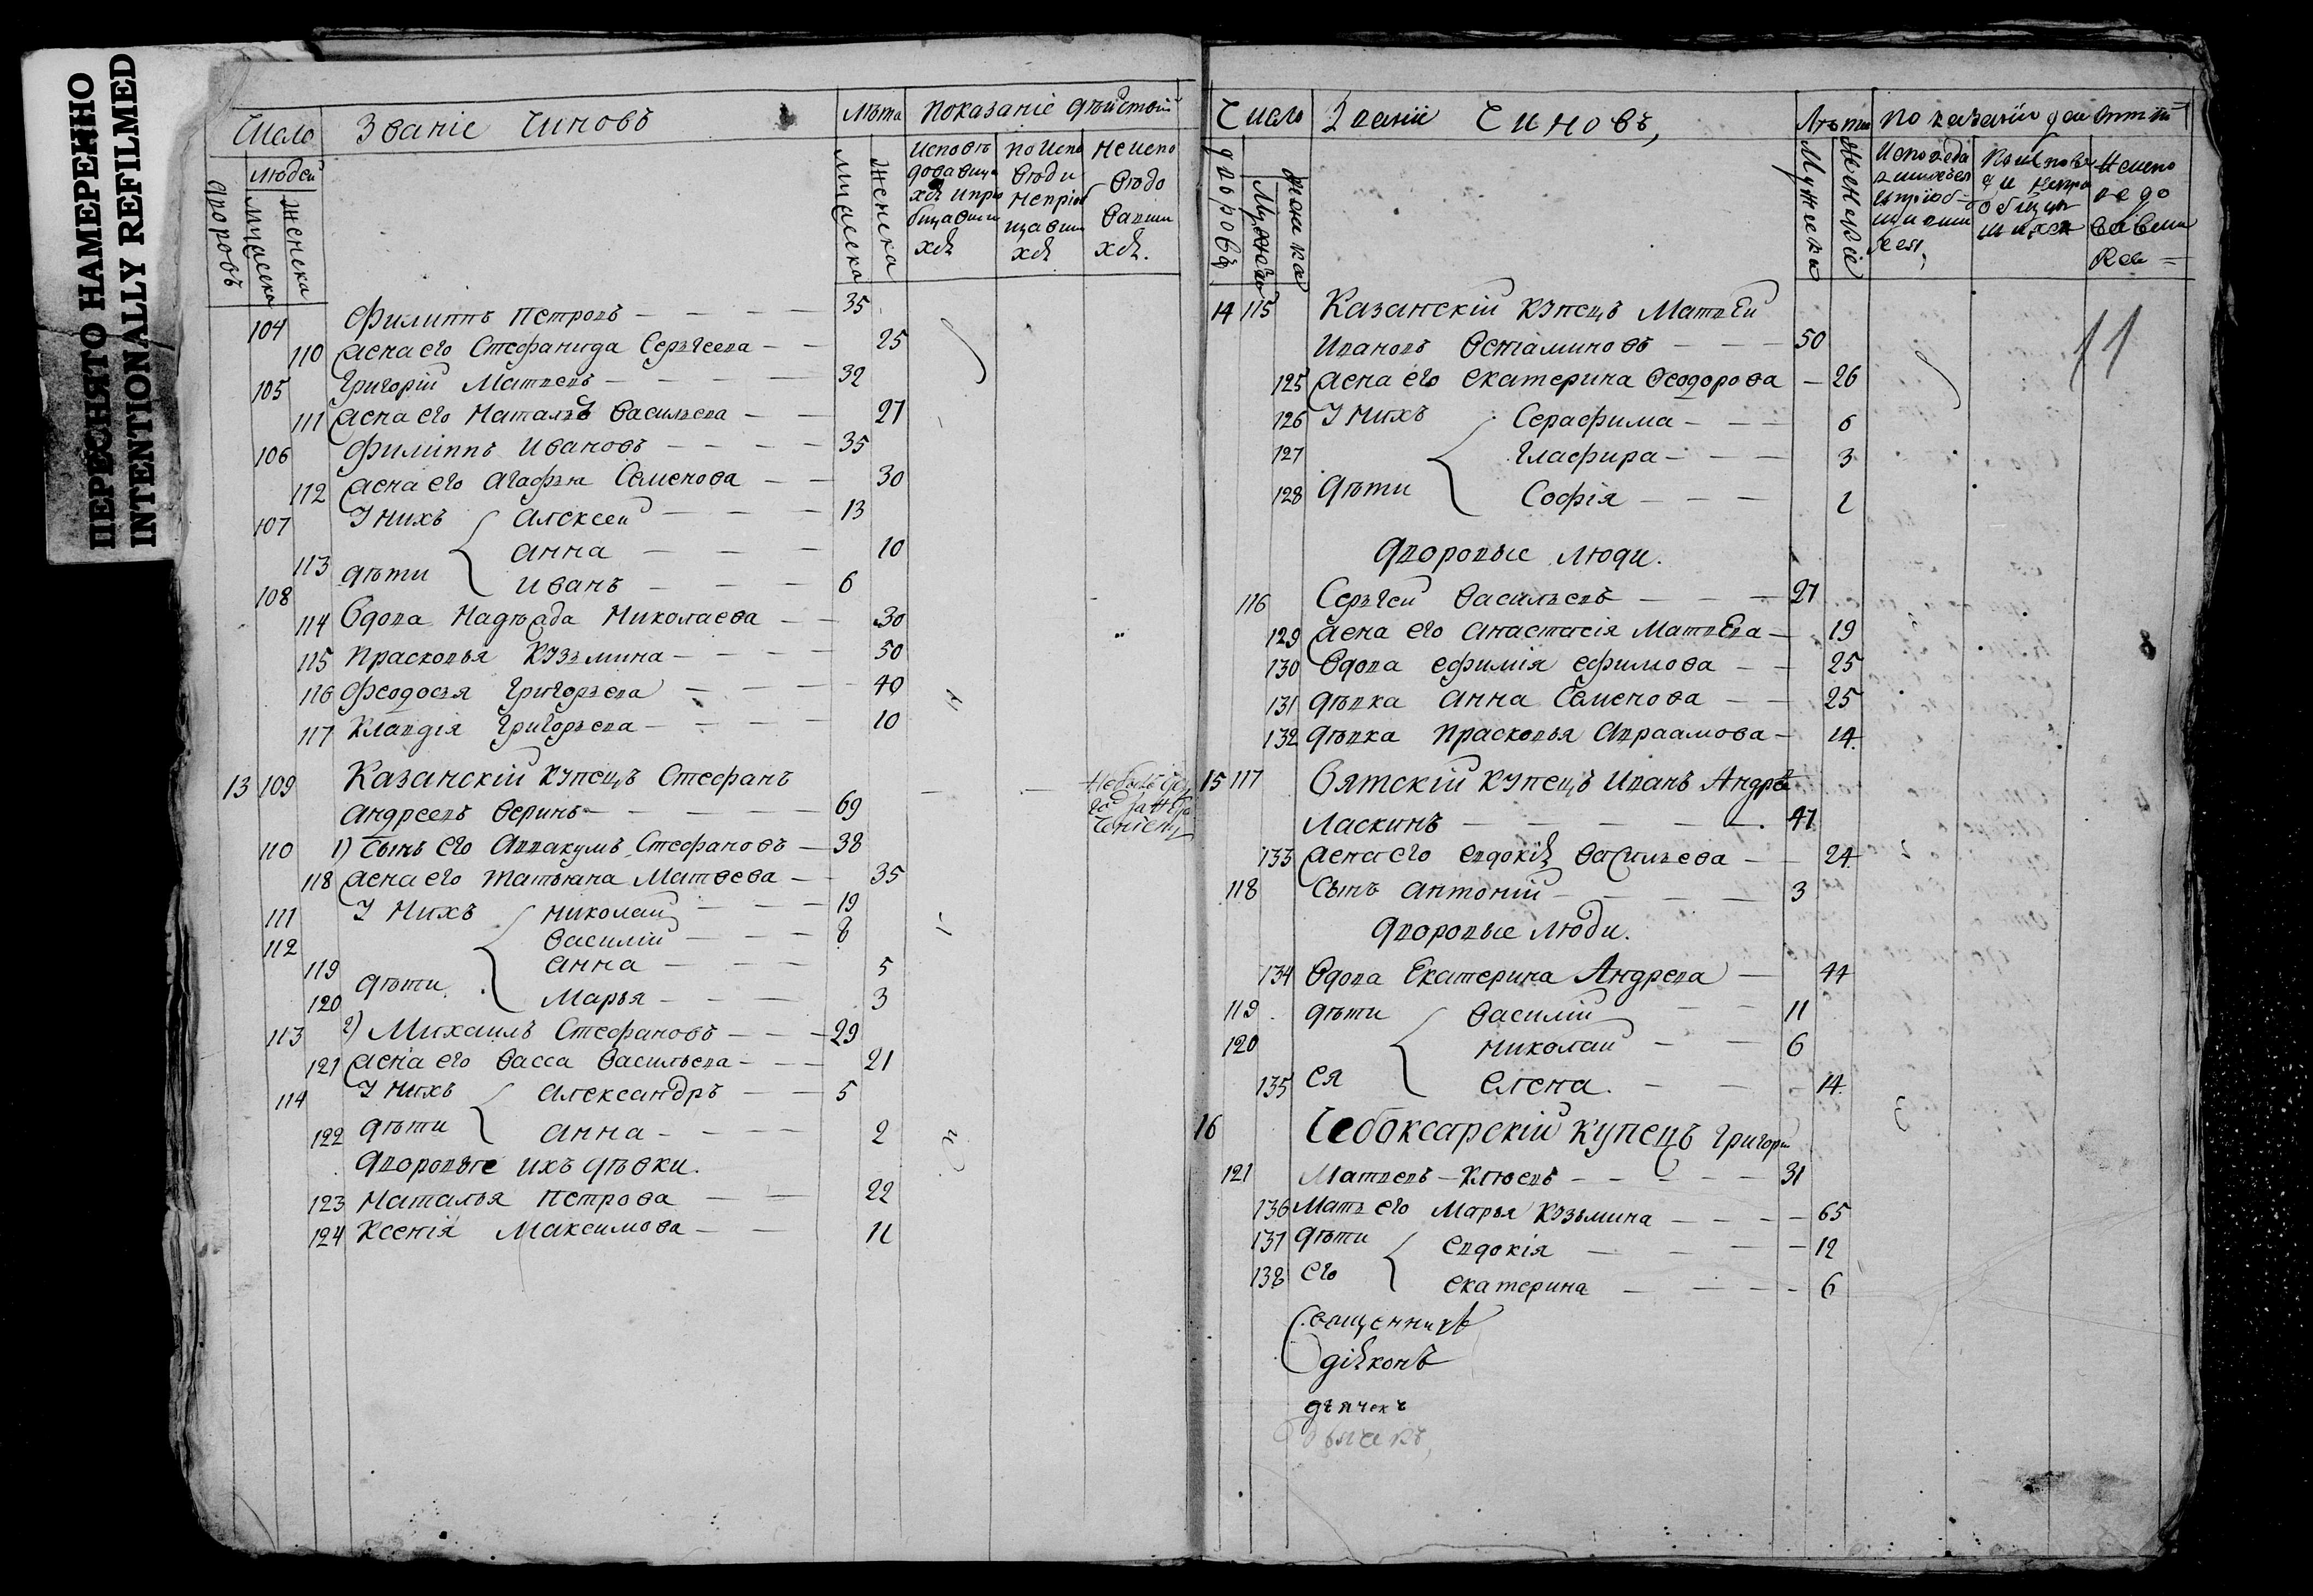 ПЕРЕСНЯТО НАМЕРЕННО
INTENTIONALLY REFILMED
Число Званіе Чиновъ Лѣта Показаніе дѣйствій
людей
дворовъ мужеска женска мужеска женска
Исповѣ по Испо Не испо
104 Филиппъ Петровъ — — — 35
110 жена его Стефанида Сергѣева — — 25
105 Григорій Матвеевъ — — — 32
111 жена его Наталья Васильева — — 27
106 Филиппъ Ивановъ — — — 35
112 жена его Агафья Семенова — — 30
107 У нихъ Алексей — — — 13
113 дѣти Анна — — — 10
108 Иванъ — — — 6
114 Вдова Надѣжда Николаева — — 30
115 Прасковья Кузьмина — — — 50
116 Феодосья Григорьева — — — 40
117 Клавдія Григорьева — — — 10
13 109 Казанскій купецъ Стефанъ
Андреевъ Веринъ — — — 69
110 1) Сынъ его Аввакумъ Стефановъ — 38
118 жена его Татьяна Матвеева — — 35
111 У нихъ Николай — — — 19
112 Василій — — — 8
119 дѣти Анна — — — 5
120 Марья — — — 3
113 2) Михаилъ Стефановъ — — — 29
121 жена его Васса Васильева — — — 21
114 У нихъ Александръ — — 5
122 дѣти Анна — — — 2
Дворовые ихъ дѣвки.
123 Наталья Петрова — — 22
124 Ксенія Максимова — — 11
Число Званіи Чиновъ,
дворовъ
Мужеска
11
14 115 Казанскій купецъ Матвей
Ивановъ Вениаминовъ — — — 50
125 жена его Екатерина Феодорова — 26
126 У нихъ Серафима — — — 6
127 Глафира — — — 3
128 дѣти Софія — — —
Дворовые люди.
116 Сергѣй Васильевъ — — — 27
129 жена его Анастасія Матвева — 19
130 Вдова Ефимія Ефимова — — 25
131 дѣвка Анна Семенова — — 25
132 дѣвка Прасковья Авраамова — 14.
15 117 Вятскій купецъ Иванъ Андре
Ласкинъ — — — — — 47
133 жена его Евдокія Васильева — — 24
118 Сынъ Антоній — — — — 3
Дворовые люди.
134 Вдова Екатерина Андрева — 44
119 дѣти Василій — — 11
120 Николай — — 6
135 ея Елена. — — 14.
16 Чебоксарскій купецъ Григори
121 Матвеевъ — Клюевъ — — — — 31
136 Мать его Марья Кузьмина — — — — 65
137 дѣти Евдокія — — — — 12
138 его Екатерина — — — — 6
Священникъ
Діяконъ
дьячекъ